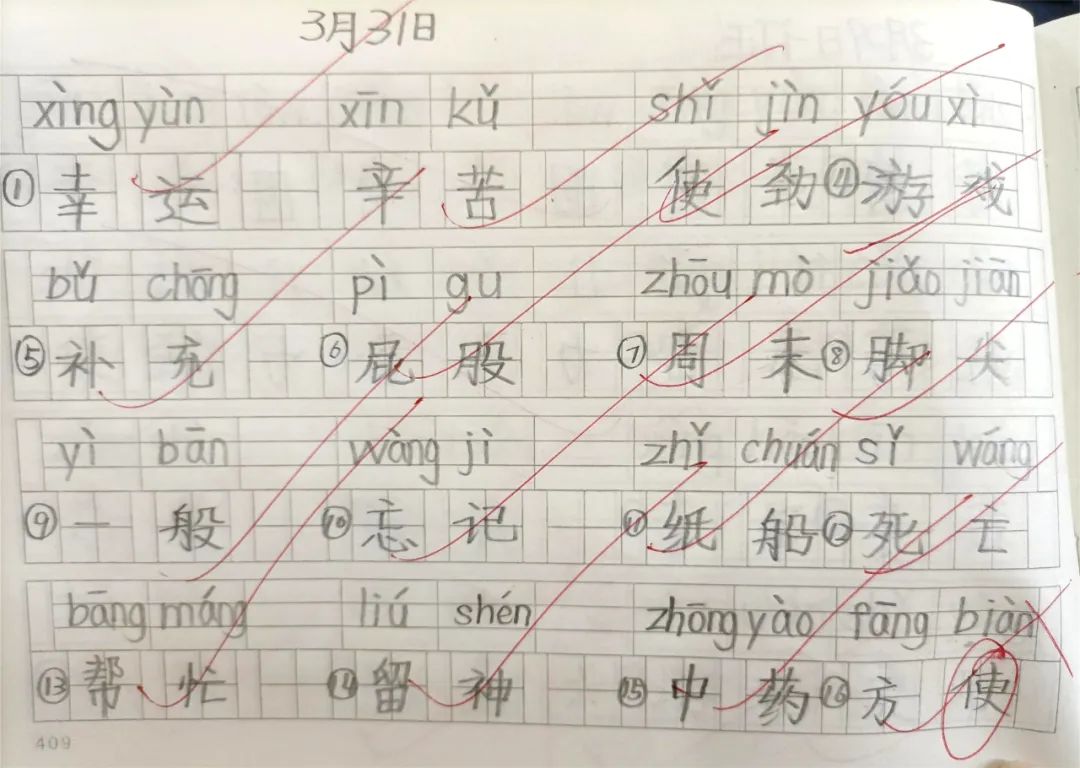 3月31日
xìng yùn xīn kǔ shǐ jìn yóu xì
①幸运 辛苦 使劲④游戏
bǔ chōng pì gu zhōu mò jiǎo jiān
⑤补充 ⑥屁股 ⑦周末⑧脚尖
yì bān wàng jì zhǐ chuán sǐ wáng
⑨一般 ⑩忘记 ⑪纸船⑫死亡
bāng máng liú shén zhōng yào fāng biàn
⑬帮忙 ⑭留神 ⑮中药⑯方使
409